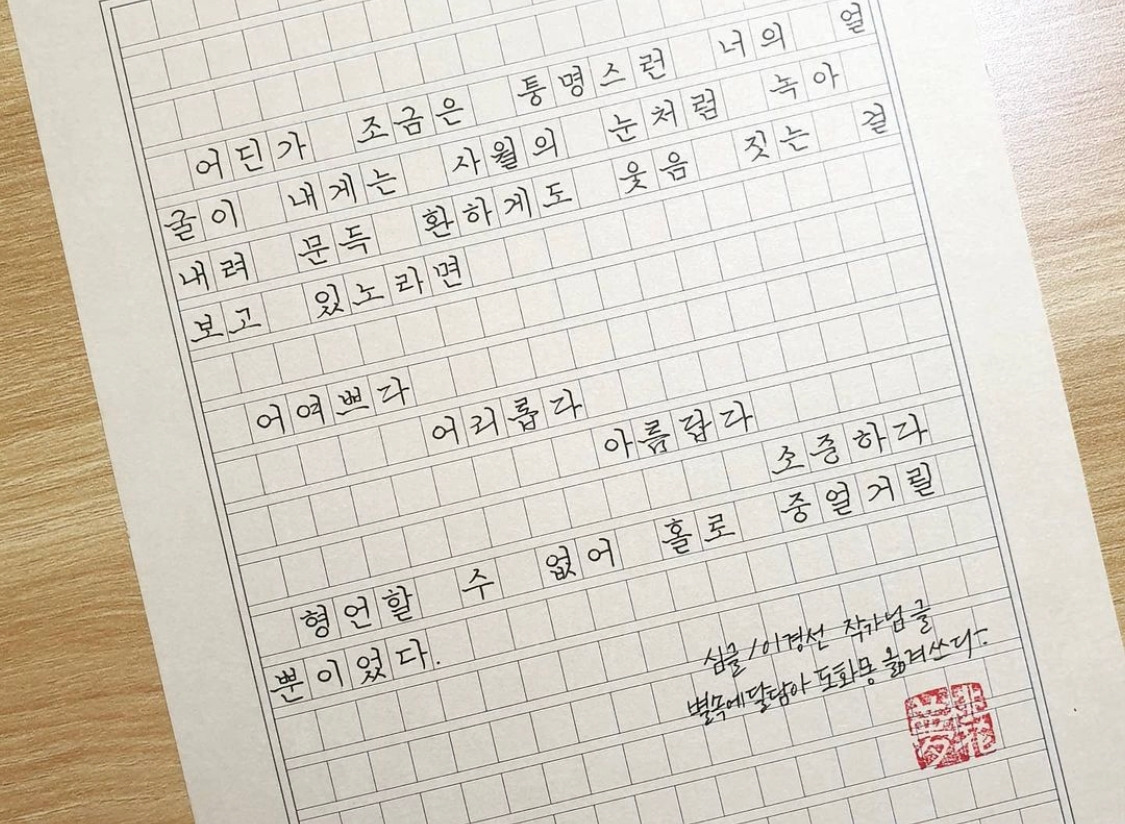 어딘가 조금은 퉁명스런 너의 얼
굴이 내게는 사월의 눈처럼 녹아
내려 문득 환하게도 웃음 짓는 걸
보고 있노라면
어여쁘다
어리롭다
아름답다
소중하다
형언할 수 없어 홀로 중얼거릴
뿐이었다.
심글/이경선 작가님 글
별속에달담아 도화몽 옮겨쓰다.